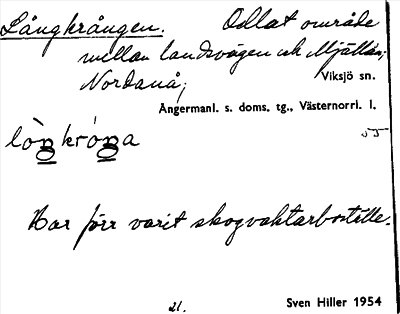 Långkrången. Odlat område
mellan landsvägen och Mjällån;
Nordanå;
Viksjö sn.
Ångermanl. s. doms. tg., Västernorrl. l.
Har förr varit skogvaktarboställe.
21. Sven Hiller 1954